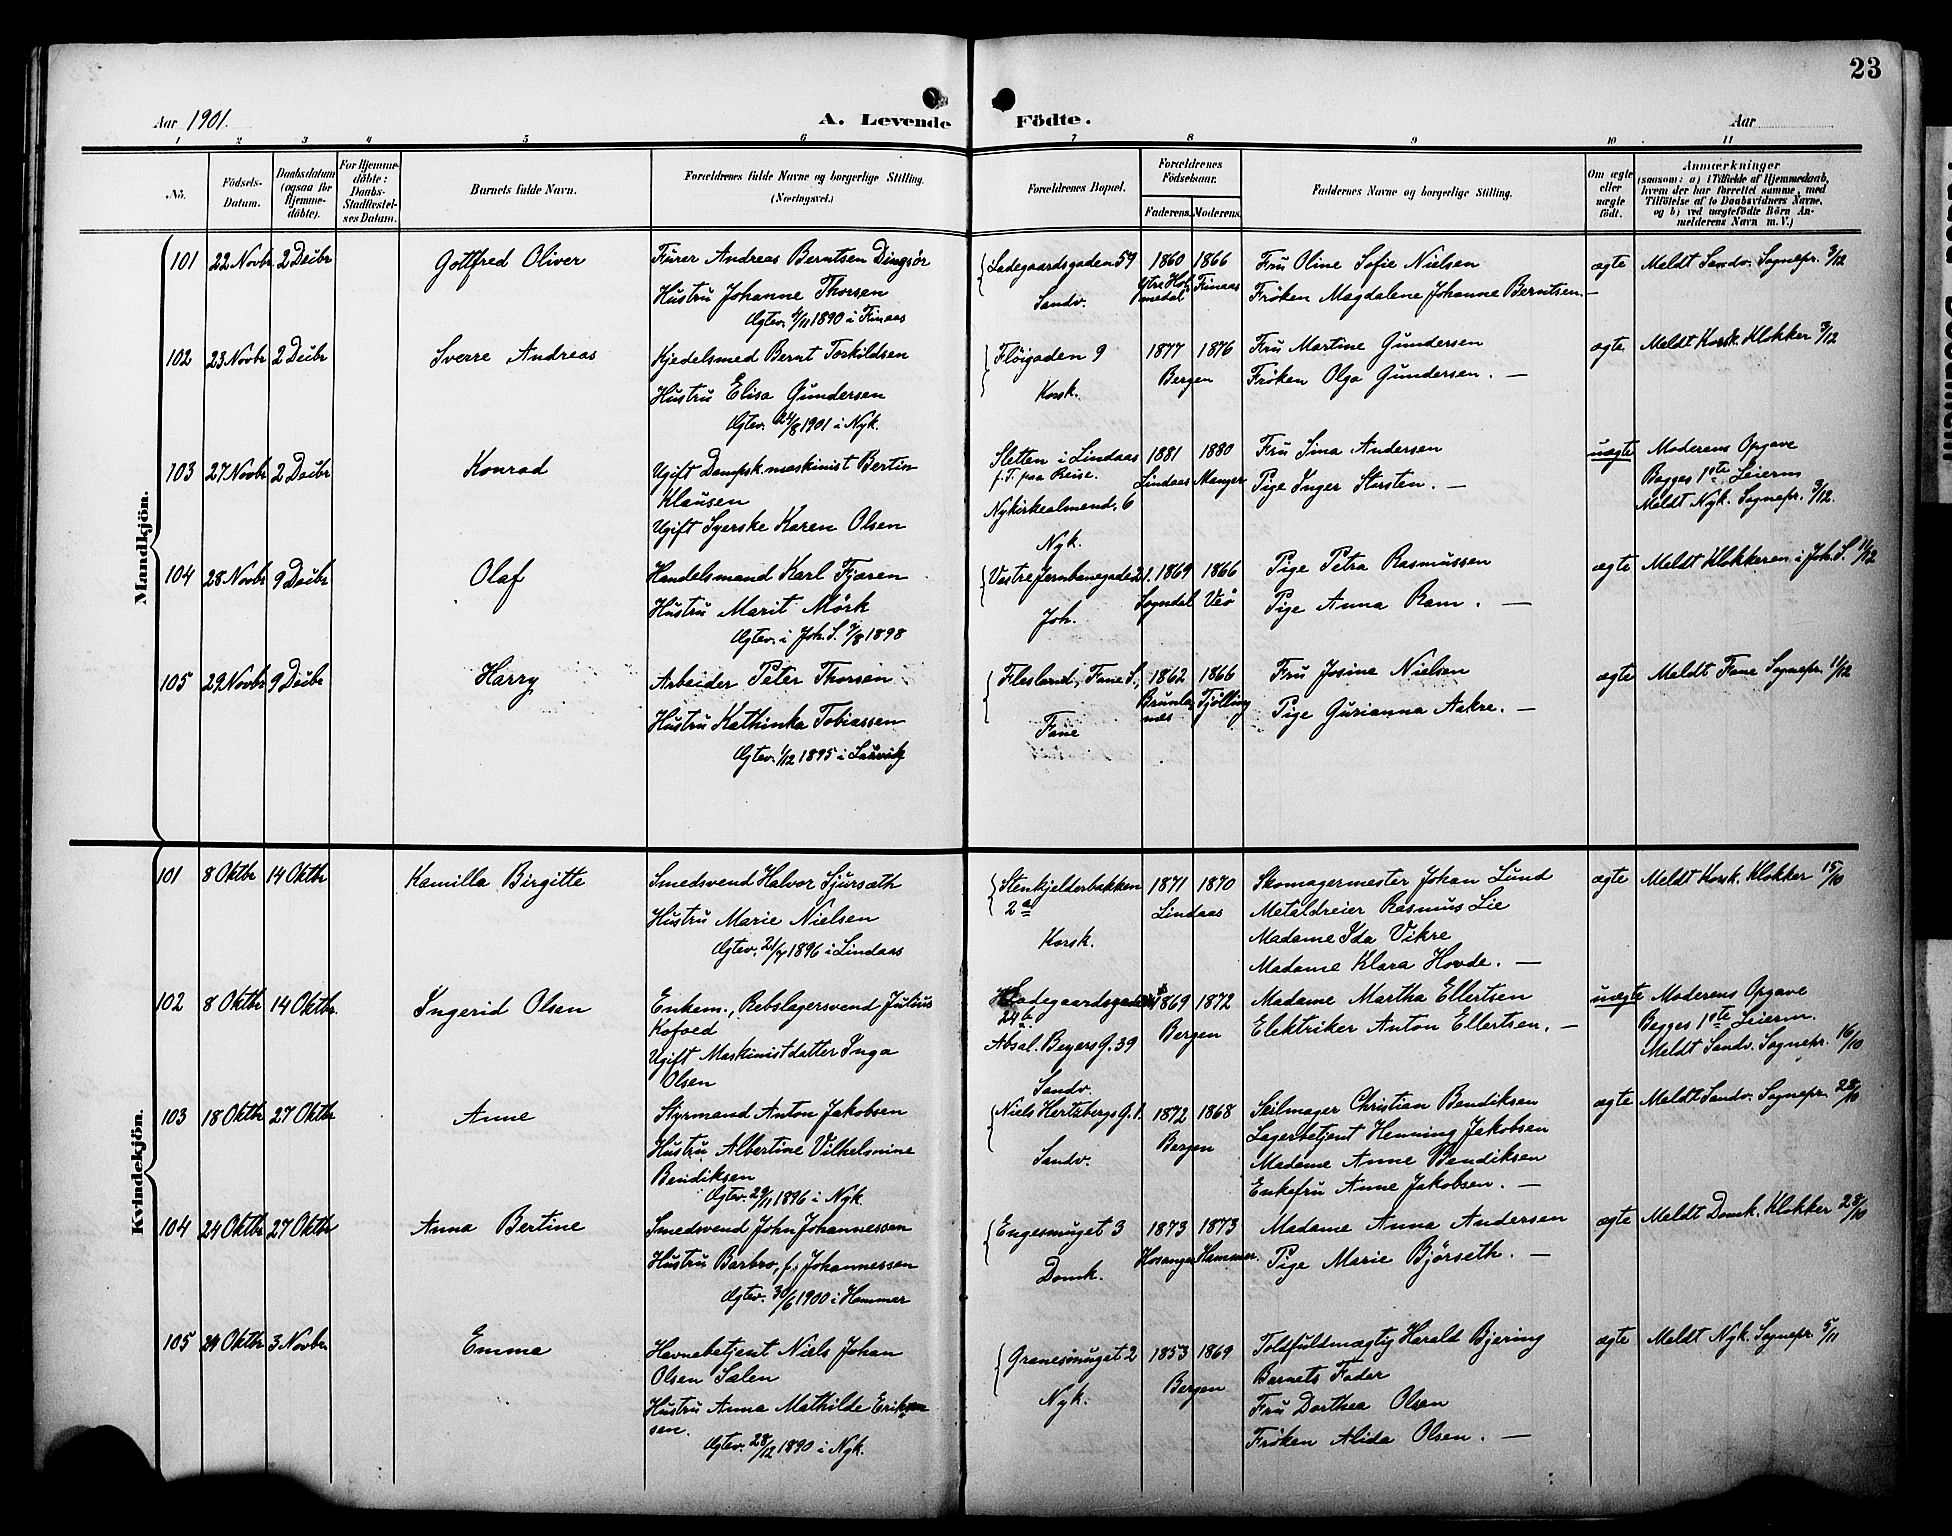 23
Aar 1901.
A. Levende Födte.
Aar
1 2 3 4 5 6 7 8 9 10 11
No.
Födsels-Datum.
Daabsdatum (ogsaa for Hjemmedöbte).
For Hjemmedöbte: Daabs-Stadfæstelses Datum.
Barnets fulde Navn.
Forældrenes fulde Navne og borgerlige Stilling. (Næringsvei.)
Forældrenes Bopæl.
Forældrenes Födselsaar.
Faderens. Moderens.
Faddernes Navne og borgerlige Stilling.
Om ægte eller uægte födt.
Anmærkninger
(saasom: a) i Tilfælde af Hjemmedaab, hvem der har forrettet samme, med Tilföielse af to Daabsvidners Navne, og b) ved uægtefödte Börn Anmelderens Navn m. V.)
Mandkjön.
101 22 Novbr 2 Decbr Gottfred Oliver
Furer Andreas Berntsen Dingsör
Hustru Johanne Thorsen
Ægtev. 4/11 1890 i Finaas
Ladegaardsgaden 59
Sandv.
1860 1866
Ytre Holmedal Finaas
Fru Oline Sofie Nielsen
Frøken Magdalene Johanne Berntsen. —
ægte Meldt Sandv. Sognepr. 3/12
102 23 Novbr 2 Decbr Sverre Andreas
Kjedelsmed Bernt Torkildsen
Hustru Elisa Gundersen
Ægtev. 24/8 1901 i Nyk.
Flöigaden 9
Korsk.
1877 1876
Bergen
Fru Martine Gundersen
Frøken Olga Gundersen. —
ægte Meldt Korsk. Klokker 3/12
103 27 Novbr 2 Decbr Konrad
Ugift Dampsk.maskinist Bertin
Klausen
Ugift Syerske Karen Olsen
Sletten i Lindaas
f. T. paa Reise.
Nykirkealmend. 6
Nyk.
1881 1880
Lindaas Manger
Fru Sina Andersen
Pige Inger Storsten. —
uægte Moderens Opgave
Begges 1ste Leierm
Meldt Nyk. Sognepr. 3/12.
104 28 Novbr 9 Decbr Olaf
Handelsmand Karl Fjæren
Hustru Marit Mörk
Ægtev. i Joh. S. 7/8 1898
Vestre Jernbanegade 21.
Joh.
1869 1866
Sogndal Veö
Pige Petra Rasmussen
Pige Anna Ram. —
ægte Meldt Klokkeren i Joh. S. 11/12
105 29 Novbr 9 Decbr Harry
Arbeider Peter Thorsen
Hustru Kathinka Tobiassen
Ægtev. 1/12 1895 i Laurvig
Flesland, Fane S.,
Fane
1862 1866
Brunlanes Tjølling
Fru Josine Nielsen
Pige Gurianna Aakre. —
ægte Meldt Fane Sognepr. 11/12
Kvindekjön.
101 8 Oktbr 14 Oktbr Kamilla Birgitte
Smedsvend Halvor Sjursæth
Hustru Marie Nielsen
Ægtev. 21/4 1896 i Lindaas
Stenkjelderbakken
2a
Korsk.
1871 1870
Lindaas
Skomagermester Johan Lund
Metaldreier Rasmus Lie
Madame Ida Vikre
Madame Klara Hovde. —
ægte Meldt Korsk. Klokker 15/10
102 8 Oktbr 14 Oktbr. Ingerid Olsen
Enkem., Rebslagersvend Julius
Kofoed
Ugift Maskinistdatter Inga
Olsen
Ladegaardsgaden
24b.
Absal. Beyers G. 39
Sandv
1869 1872
Bergen
Madame Martha Ellertsen
Elektriker Anton Ellertsen. —
uægte Moderens Opgave
Begges 1ste Leierm.
Meldt Sandv. Sognepr. 16/10
103 18 Oktbr 27 Oktbr Anne
Styrmand Anton Jakobsen
Hustru Albertine Vilhelmine
Bendiksen
Ægtev. 29/11 1896 i Nyk.
Niels Hertzbergs G. 1.
Sandv.
1872 1868
Bergen
Seilmager Christian Bendiksen
Lagerbetjent Henning Jakobsen
Madame Anne Bendiksen
Enkefru Anne Jakobsen. —
ægte Meldt Sandv. Sognepr. 28/10
104 24 Oktbr 27 Oktbr Anna Bertine
Smedsvend John Johannessen
Hustru Barbro, f. Johannessen
Ægtev. 30/6 1900 i Hammer
Engesmuget 3
Domk.
1873 1873
Hosanger Hammer.
Madame Anna Andersen
Pige Marie Bjørseth. —
ægte Meldt Domk. Klokker 28/10
105 24 Oktbr 3 Novbr Emma
Havnebetjent Niels Johan
Olsen Salen
Hustru Anna Mathilde Eriksen
sen.
Ægtev. 28/12 1890 i Nyk.
Granesmuget 2
Nyk.
1853 1869
Bergen
Toldfuldmægtig Harald Bjering
Barnets Fader
Fru Dorthea Olsen
Frøken Alida Olsen. —
ægte Meldt Nyk. Sognepr. 5/11